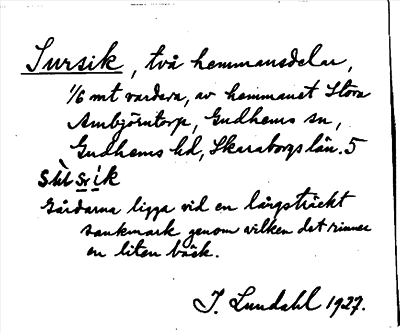 Sursik, två hemmansdelar,
1/6 mt vardera, av hemmanet Stora
Ambjörntorp, Gudhems sn,
Gudhems hd, Skaraborgs län. 5
Gårdarna ligga vid en långsträckt
sankmark genom vilken det rinner
en liten bäck.
I. Lundahl 1927.